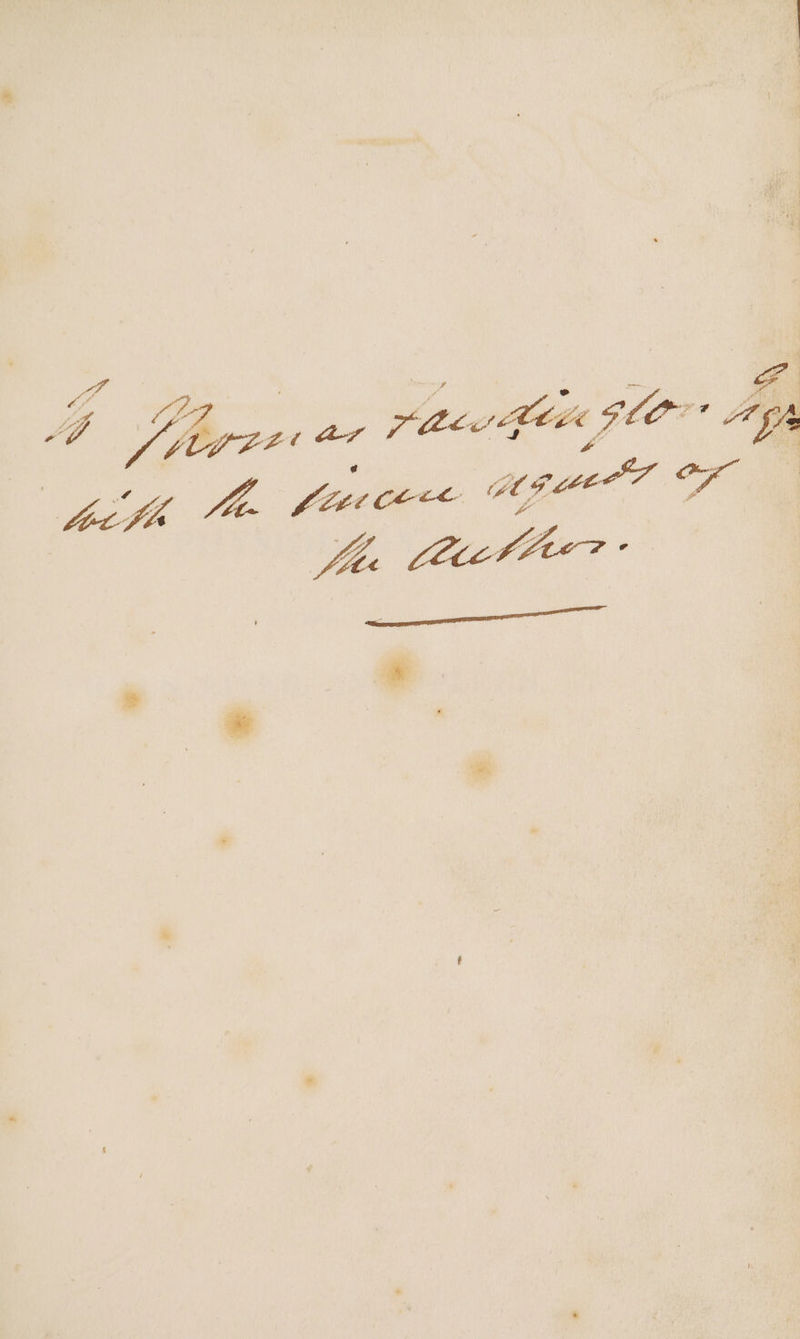 To Thomas Fawdington Esqr
with the sincere regards of
the Author.